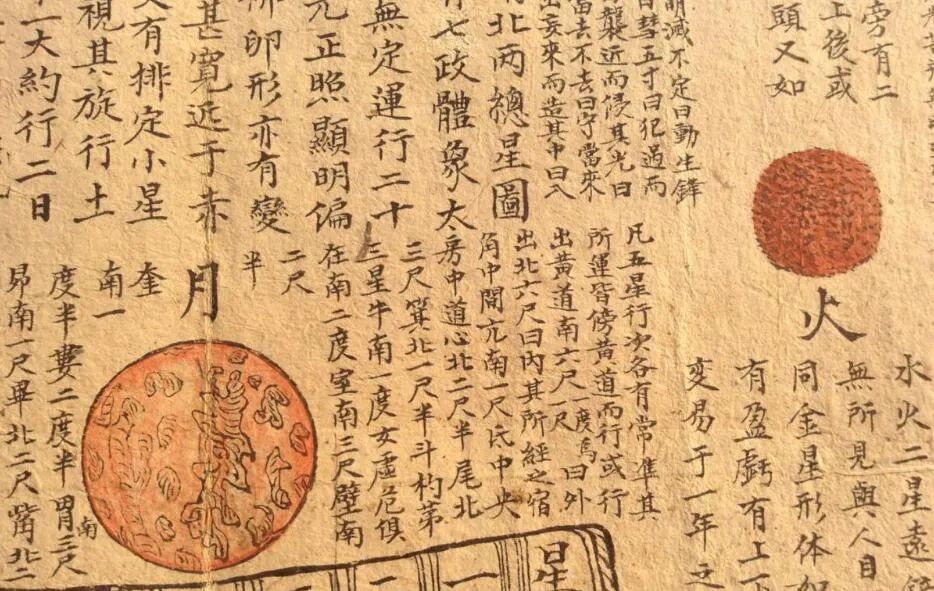 旁有二
上後或
頭又如
萌滅不定曰動生鋒
彗五寸曰犯過而
襲近而侵其光曰
當去不去曰守當來
出妄來而造其中曰入
北两總星圖
有七政體象太
無定運行二十
元正照顯明偏
卵形亦有變
甚寬远于赤
又有排定小星
視其旋行土
一大約行二日
火
水火二星遠
無所見與人目
同金星形体如
有盈虧有上下
变易于一年之
凡五星行次各有常準其
所運皆傍黄道而行或行
出黄道南六尺一尺曰外
一度為
出北六尺曰内其所經之宿
角中間亢南一尺氐中央
房中道心北二尺半尾北
三尺箕北一尺半斗杓苐
三星牛南一度女虛危俱
在南二度室南三尺壁南
二尺
半
月
奎
南一
度半婁二度半胃三尺
南
昴南一尺畢北二尺觜北二
星
一